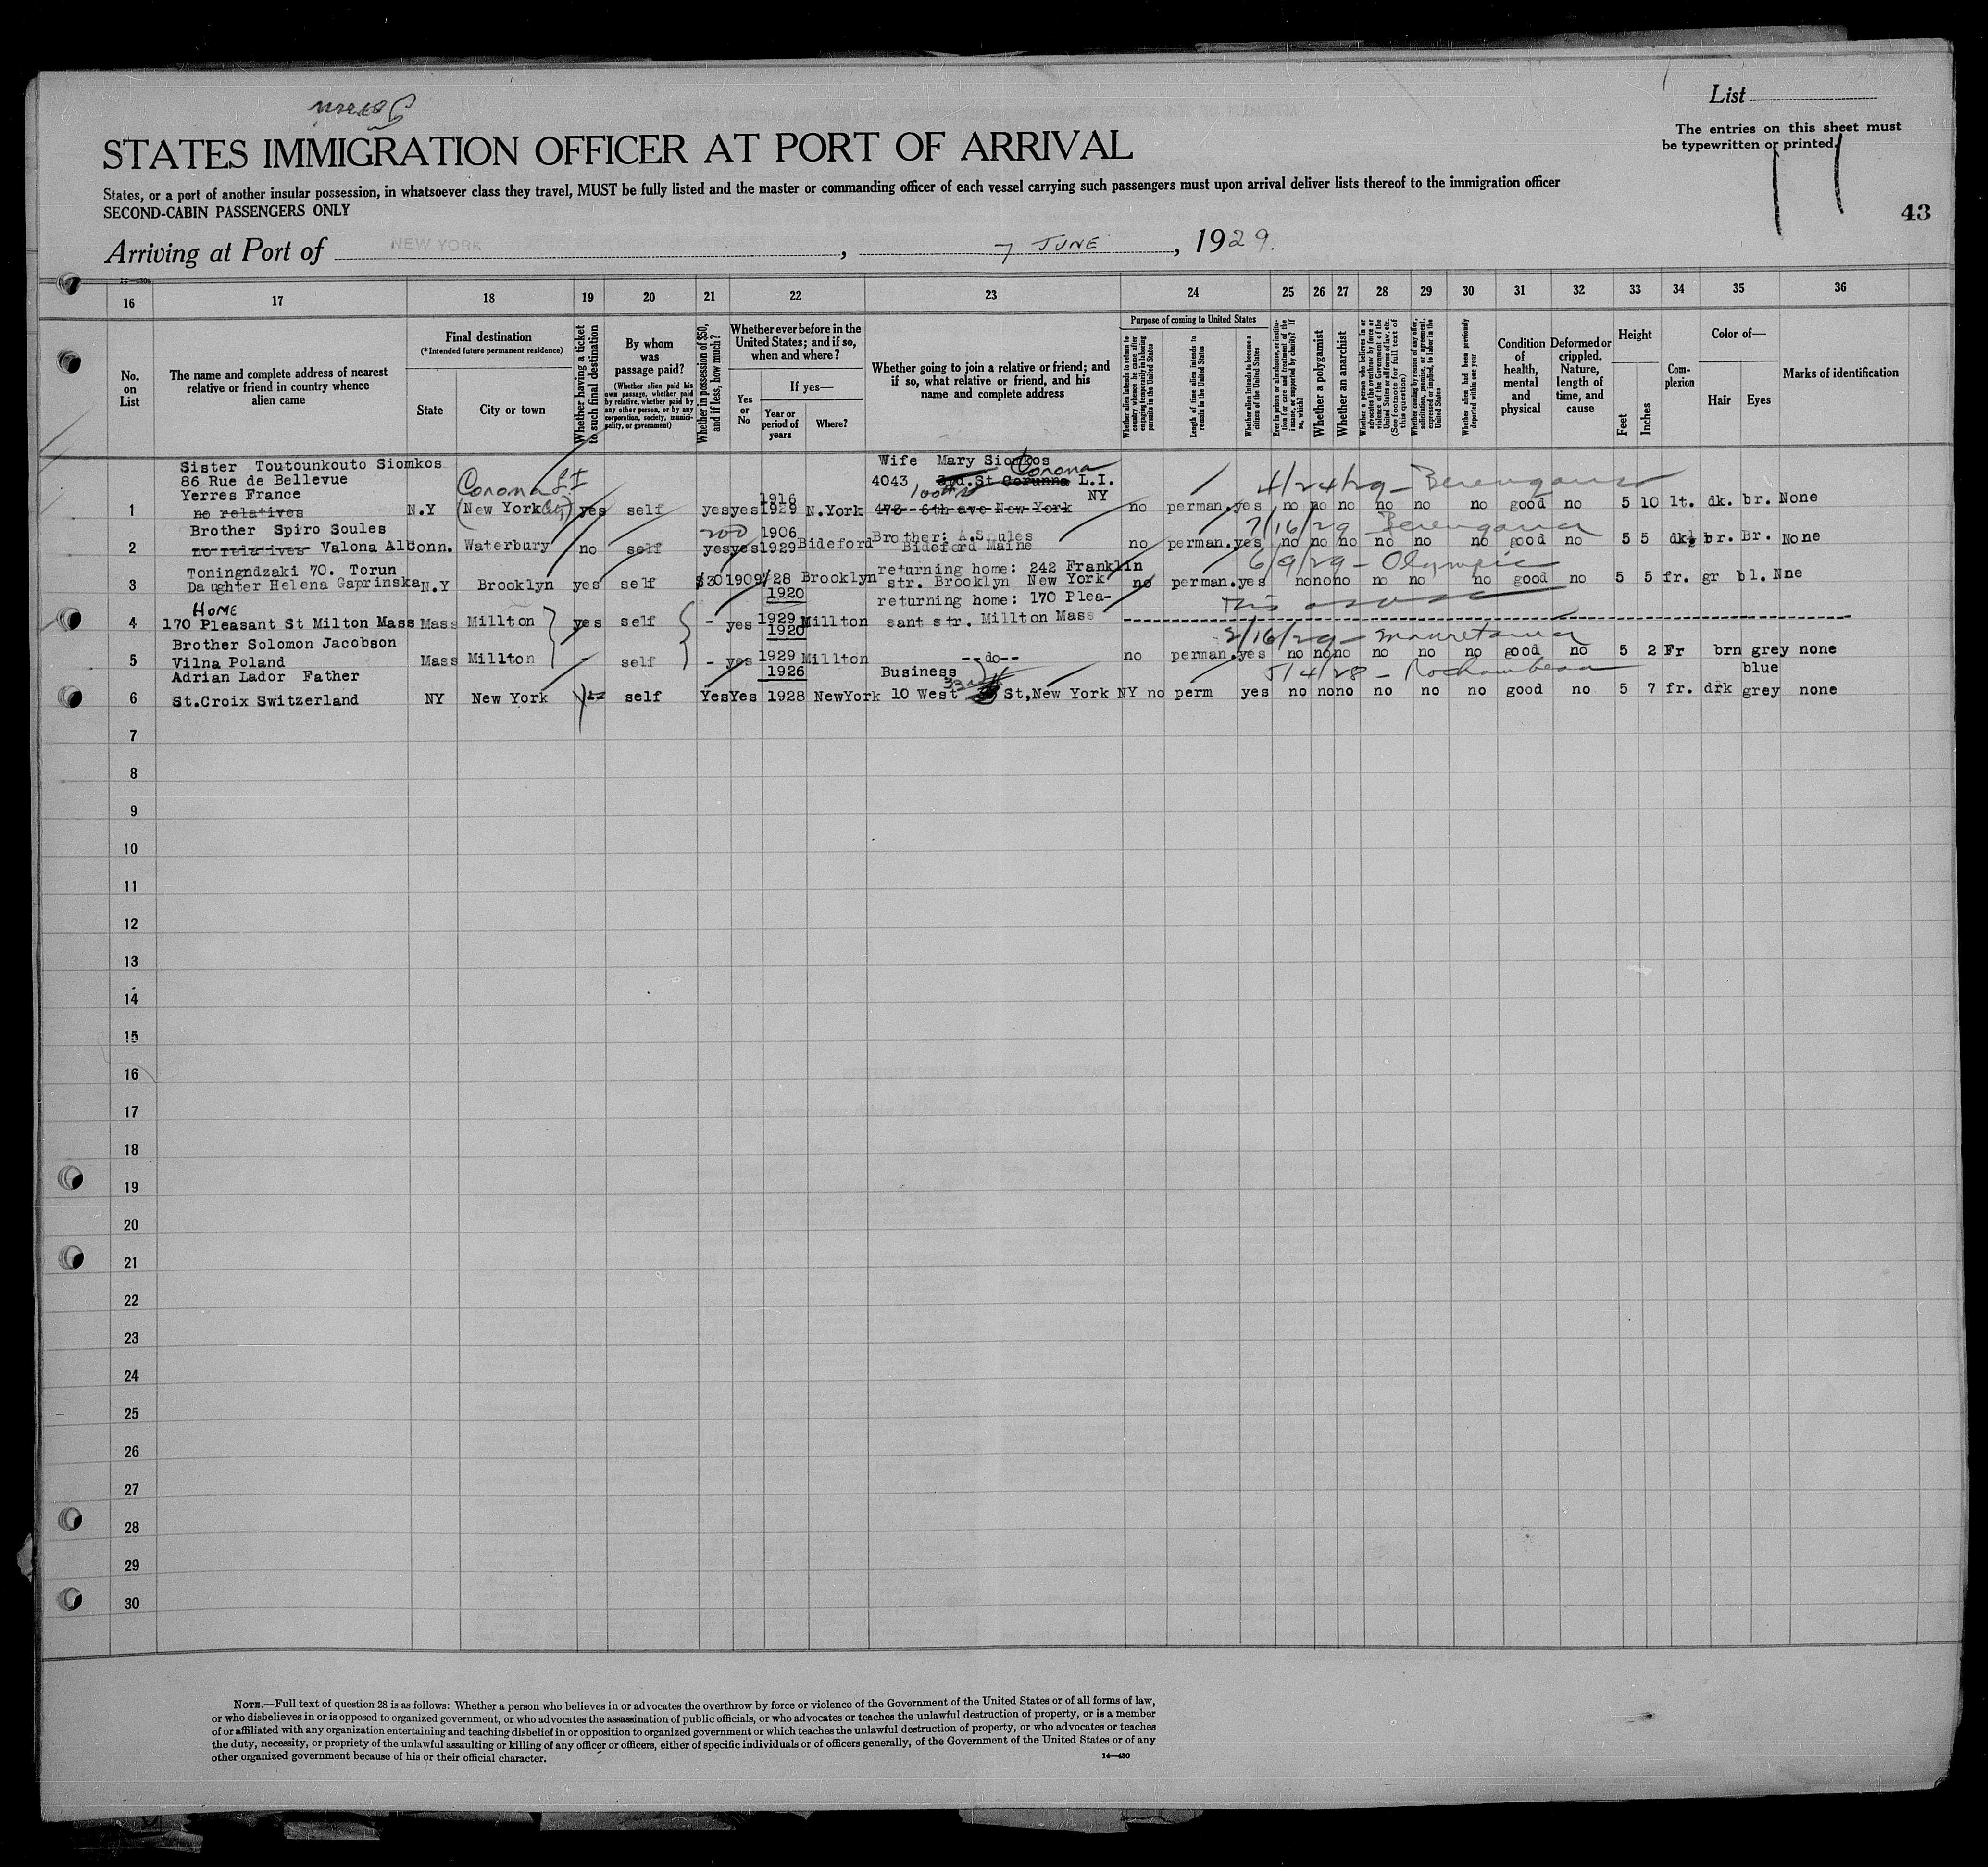 List
The entries on this sheet must
be typewritten or printed.
STATES IMMIGRATION OFFICER AT PORT OF ARRIVAL
States, or a port of another insular possession, in whatsoever class they travel, MUST be fully listed and the master or commanding officer of each vessel carrying such passengers must upon arrival deliver lists thereof to the immigration officer
SECOND-CABIN PASSENGERS ONLY
43
Arriving at Port of NEW YORK, 7 JUNE, 1929.
16 17 18 19 20 21 22 23 24 25 26 27 28 29 30 31 32 33 34 35 36
No.
on
List
The name and complete address of nearest
relative or friend in country whence
alien came
Final destination
(*Intended future permanent residence)
State
City or town
Whether having a ticket
to such final destination
By whom
was
passage paid?
(Whether alien paid his
own passage, whether paid
by relative, whether paid by
any other person, or by any
corporation, society, munici-
pality, or government)
Whether in possession of $50,
and if less, how much?
Whether ever before in the
United States; and if so,
when and where?
Yes
or
No
If yes—
Year or
period of
years
Where?
Whether going to join a relative or friend; and
if so, what relative or friend, and his
name and complete address
Purpose of coming to United States
Whether alien intends to return to
country whence he came after
engaging temporarily in laboring
pursuits in the United States
Length of time alien intends to
remain in the United States
Whether alien intends to become a
citizen of the United States
Ever in prison or almshouse, or institu-
tion for care and treatment of the
insane, or supported by charity? If
so, which?
Whether a polygamist
Whether an anarchist
Whether a person who believes in or
advocates the overthrow by force or
violence of the Government of the
United States or all forms of law, etc.
(See footnote for full text of
this question)
Whether coming by reason of any offer,
solicitation, promise, or agreement,
expressed or implied, to labor in the
United States
Whether alien had been previously
deported within one year
Condition
of
health,
mental
and
physical
Deformed or
crippled.
Nature,
length of
time, and
cause
Height
Feet
Inches
Com-
plexion
Color of—
Hair
Eyes
Marks of identification
Sister Toutounkouto Siomkos
86 Rue de Bellevue
Yerres France
Wife Mary Siomkos
Corona
4043 3rd.St Corunna L.I.
100th St NY
Corona L I
4/24/29 - Berengaria
1916
1 no relatives N.Y (New York City) yes self yes yes 1929 N.York 473 - 6th ave New York no perman. yes no no no no no no good no 5 10 lt. dk. br. None
Brother Spiro Soules 200 1906 Brother: A.Soules 7/16/29 - Berengaria
2 no relatives Valona Alb Conn. Waterbury no self yes yes 1929 Bideford Bideford Maine no perman. yes no no no no no no good no 5 5 dk br. Br. None
Toningndzaki 70. Torun returning home: 242 Franklin 6/9/29 - Olympic
3 Daughter Helena Gaprinska N.Y Brooklyn yes self $30 1909/28 Brooklyn str. Brooklyn New York no perman. yes no no no no no no good no 5 5 fr. gr bl. Nne
HOME 1920 returning home: 170 Plea-
4 170 Pleasant St Milton Mass Mass Millton yes self - yes 1929 Millton sant str. Millton Mass
Brother Solomon Jacobson 1920 2/16/29 - Mauretania
5 Vilna Poland Mass Millton - self - yes 1929 Millton --do-- no perman. yes no no no no no no good no 5 2 Fr brn grey none
Adrian Lador Father 1926 Business 33rd 5/4/28 - Rochambeau blue
6 St.Croix Switzerland NY New York yes self Yes Yes 1928 NewYork 10 West St,New York NY no perm yes no no no no no no good no 5 7 fr. drk grey none
7
8
9
10
11
12
13
14
15
16
17
18
19
20
21
22
23
24
25
26
27
28
29
30
NOTE.—Full text of question 28 is as follows: Whether a person who believes in or advocates the overthrow by force or violence of the Government of the United States or of all forms of law,
or who disbelieves in or is opposed to organized government, or who advocates the assassination of public officials, or who advocates or teaches the unlawful destruction of property, or is a member
of or affiliated with any organization entertaining and teaching disbelief in or opposition to organized government or which teaches the unlawful destruction of property, or who advocates or teaches
the duty, necessity, or propriety of the unlawful assaulting or killing of any officer or officers, either of specific individuals or of officers generally, of the Government of the United States or of any
other organized government because of his or their official character.
14—430